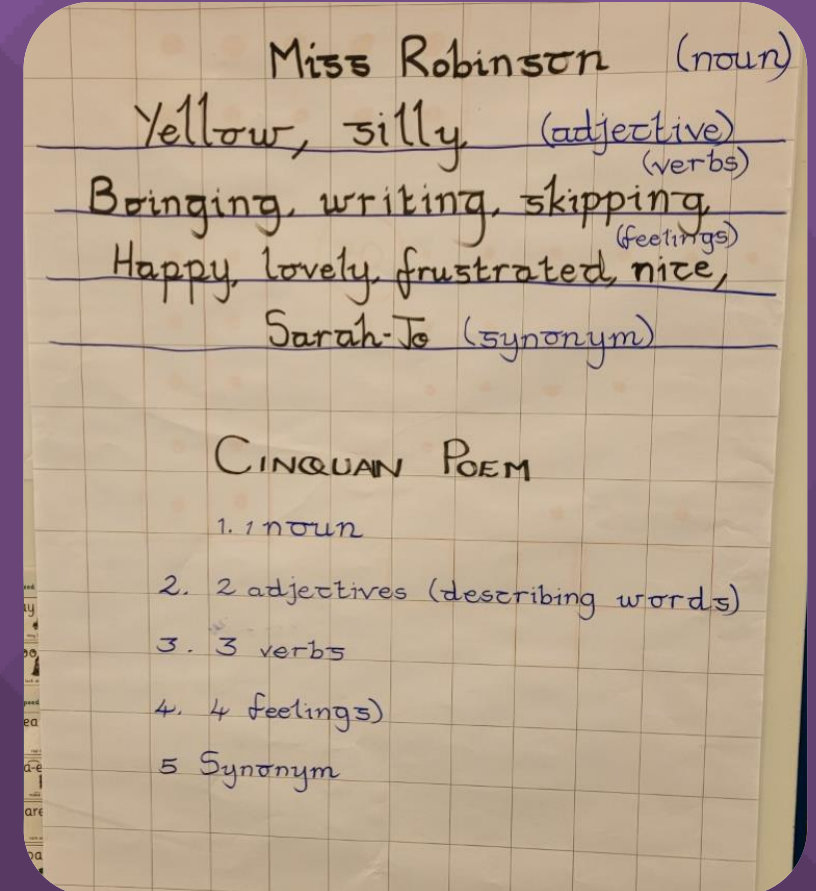 Miss Robinson (noun)
Yellow, silly (adjective)
(verbs)
Boinging, writing, skipping
(feelings)
Happy, lovely, frustrated, nice,
Sarah-Jo (synonym)
CINQUAN POEM
1. 1 noun
2. 2 adjectives (describing words)
3. 3 verbs
4. 4 feelings)
5 Synonym